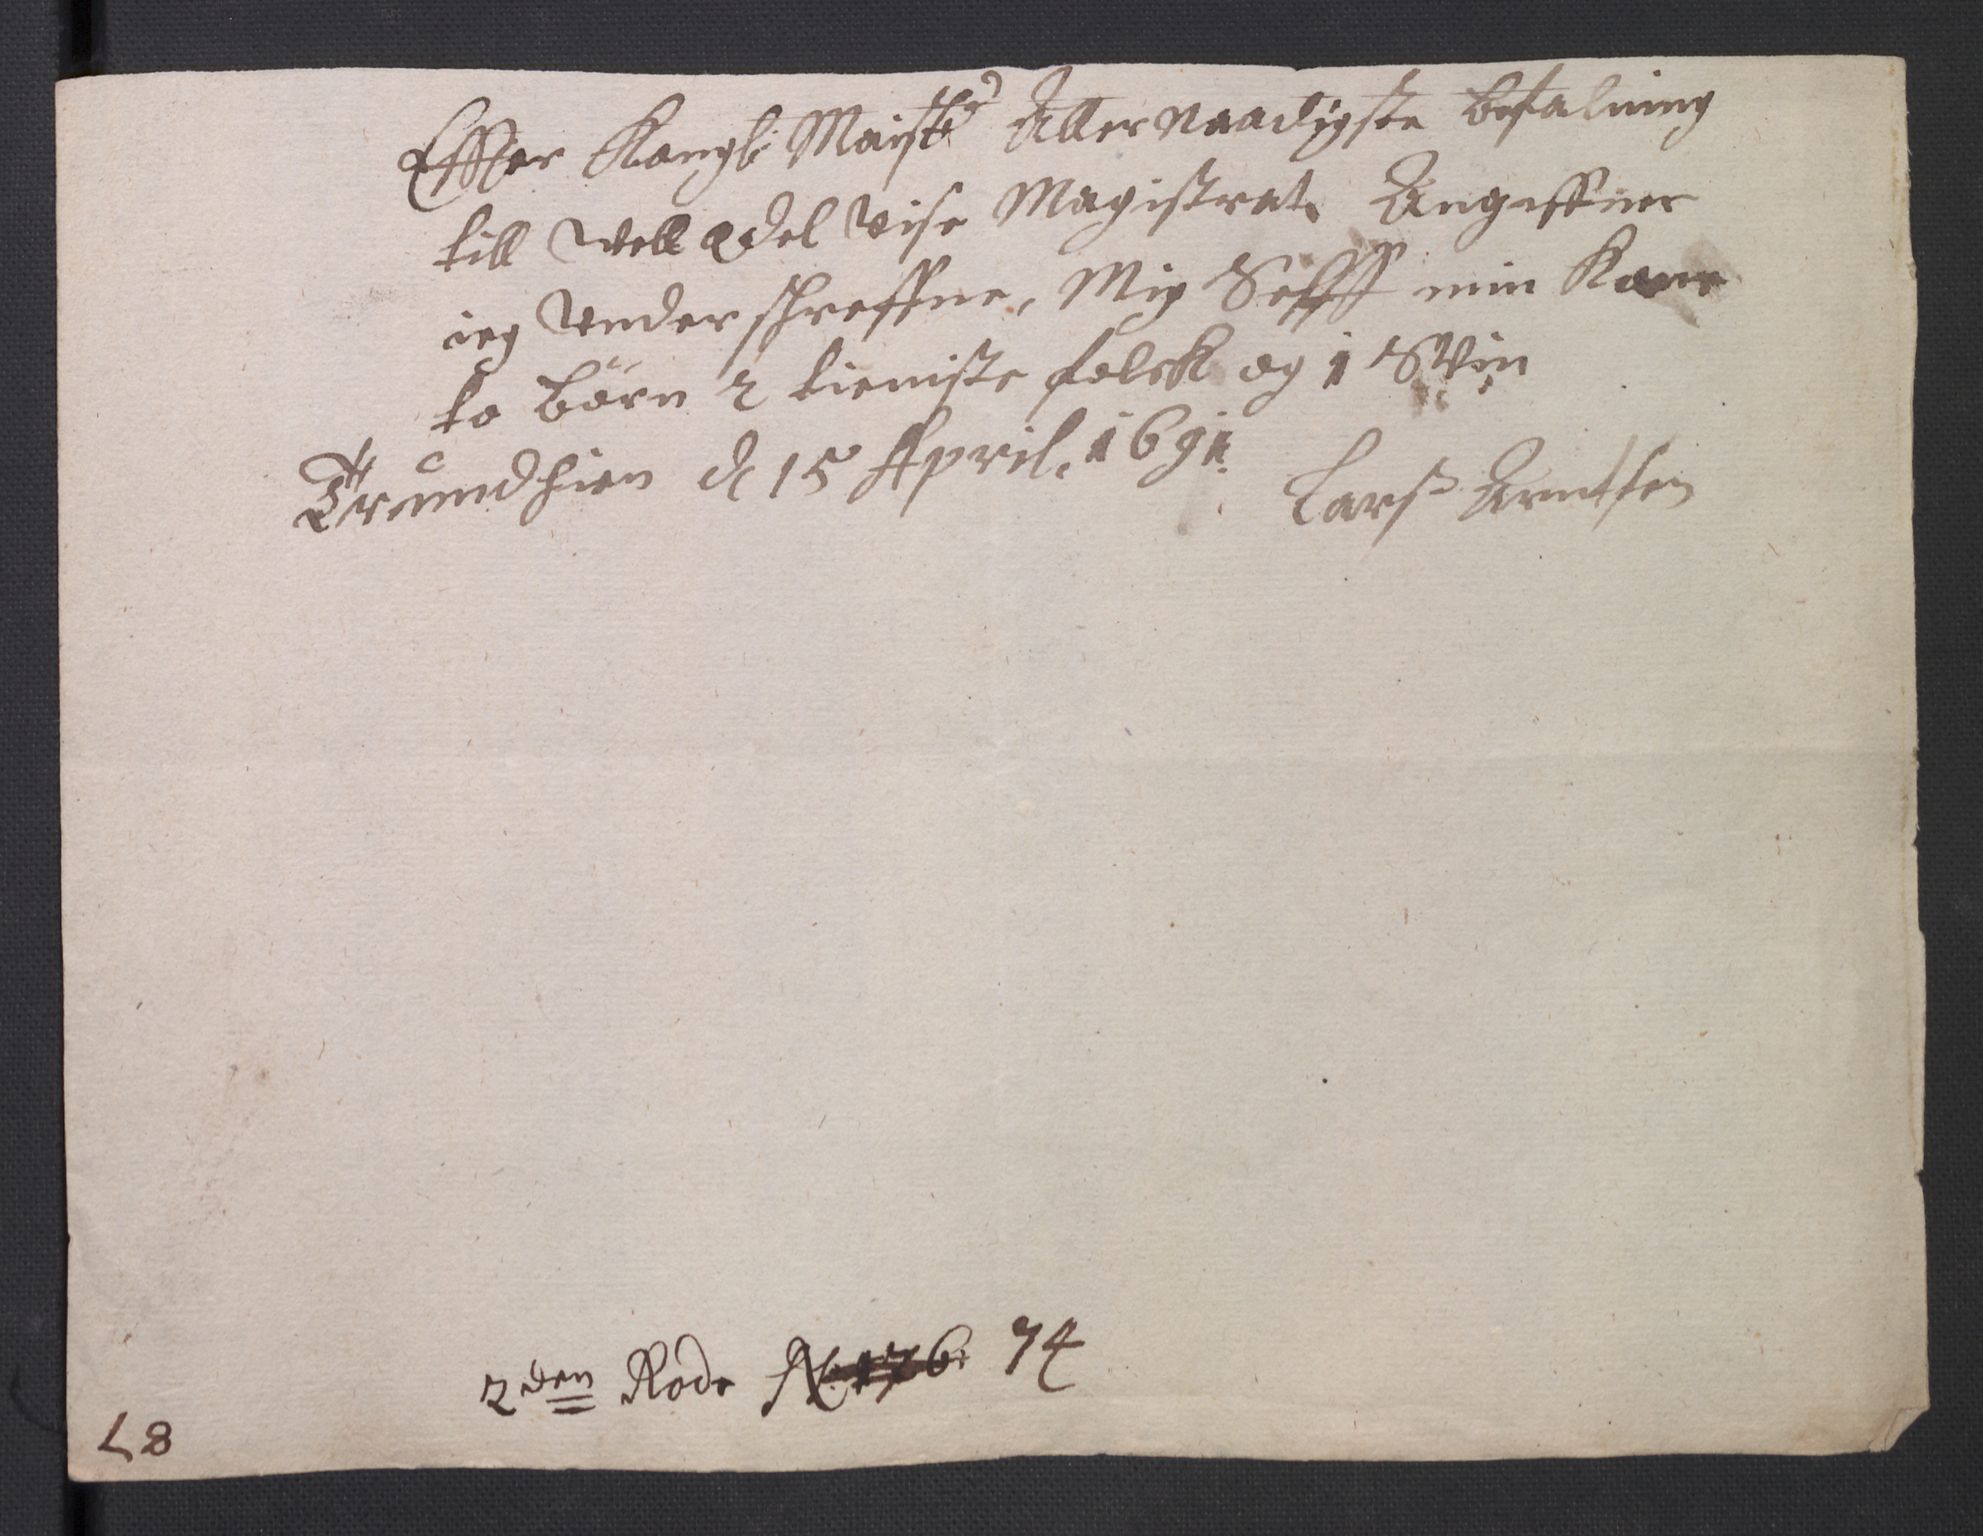 Effter Kongl: Maist: Aller Naadigste befalning
till Well Edel Vise Magistrat, Angiffuer
ieg Underschreffne, Mig Selff min Kone
to Börn 2 tieniste folck og 1 Svin
Trundhien d 15 April, 1691.
Larß Arntsen
2den Rode N: 176: 74